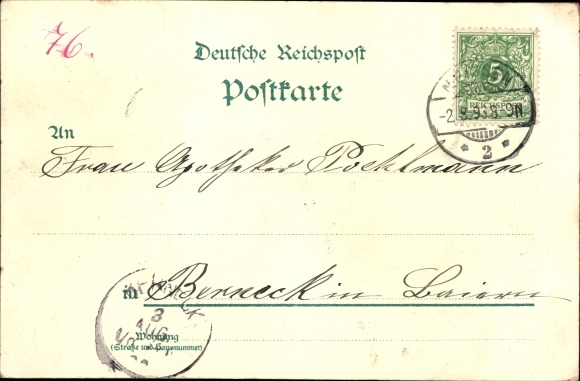 76.
Deutsche Reichspost
Postkarte
5
REICHSPOST
-2.8.98.8-9N
* 2 *
An
Frau Apotheker Pöhlmann
in Berneck in Baiern
3
AUG
Wohnung
(Straße und Hausnummer)